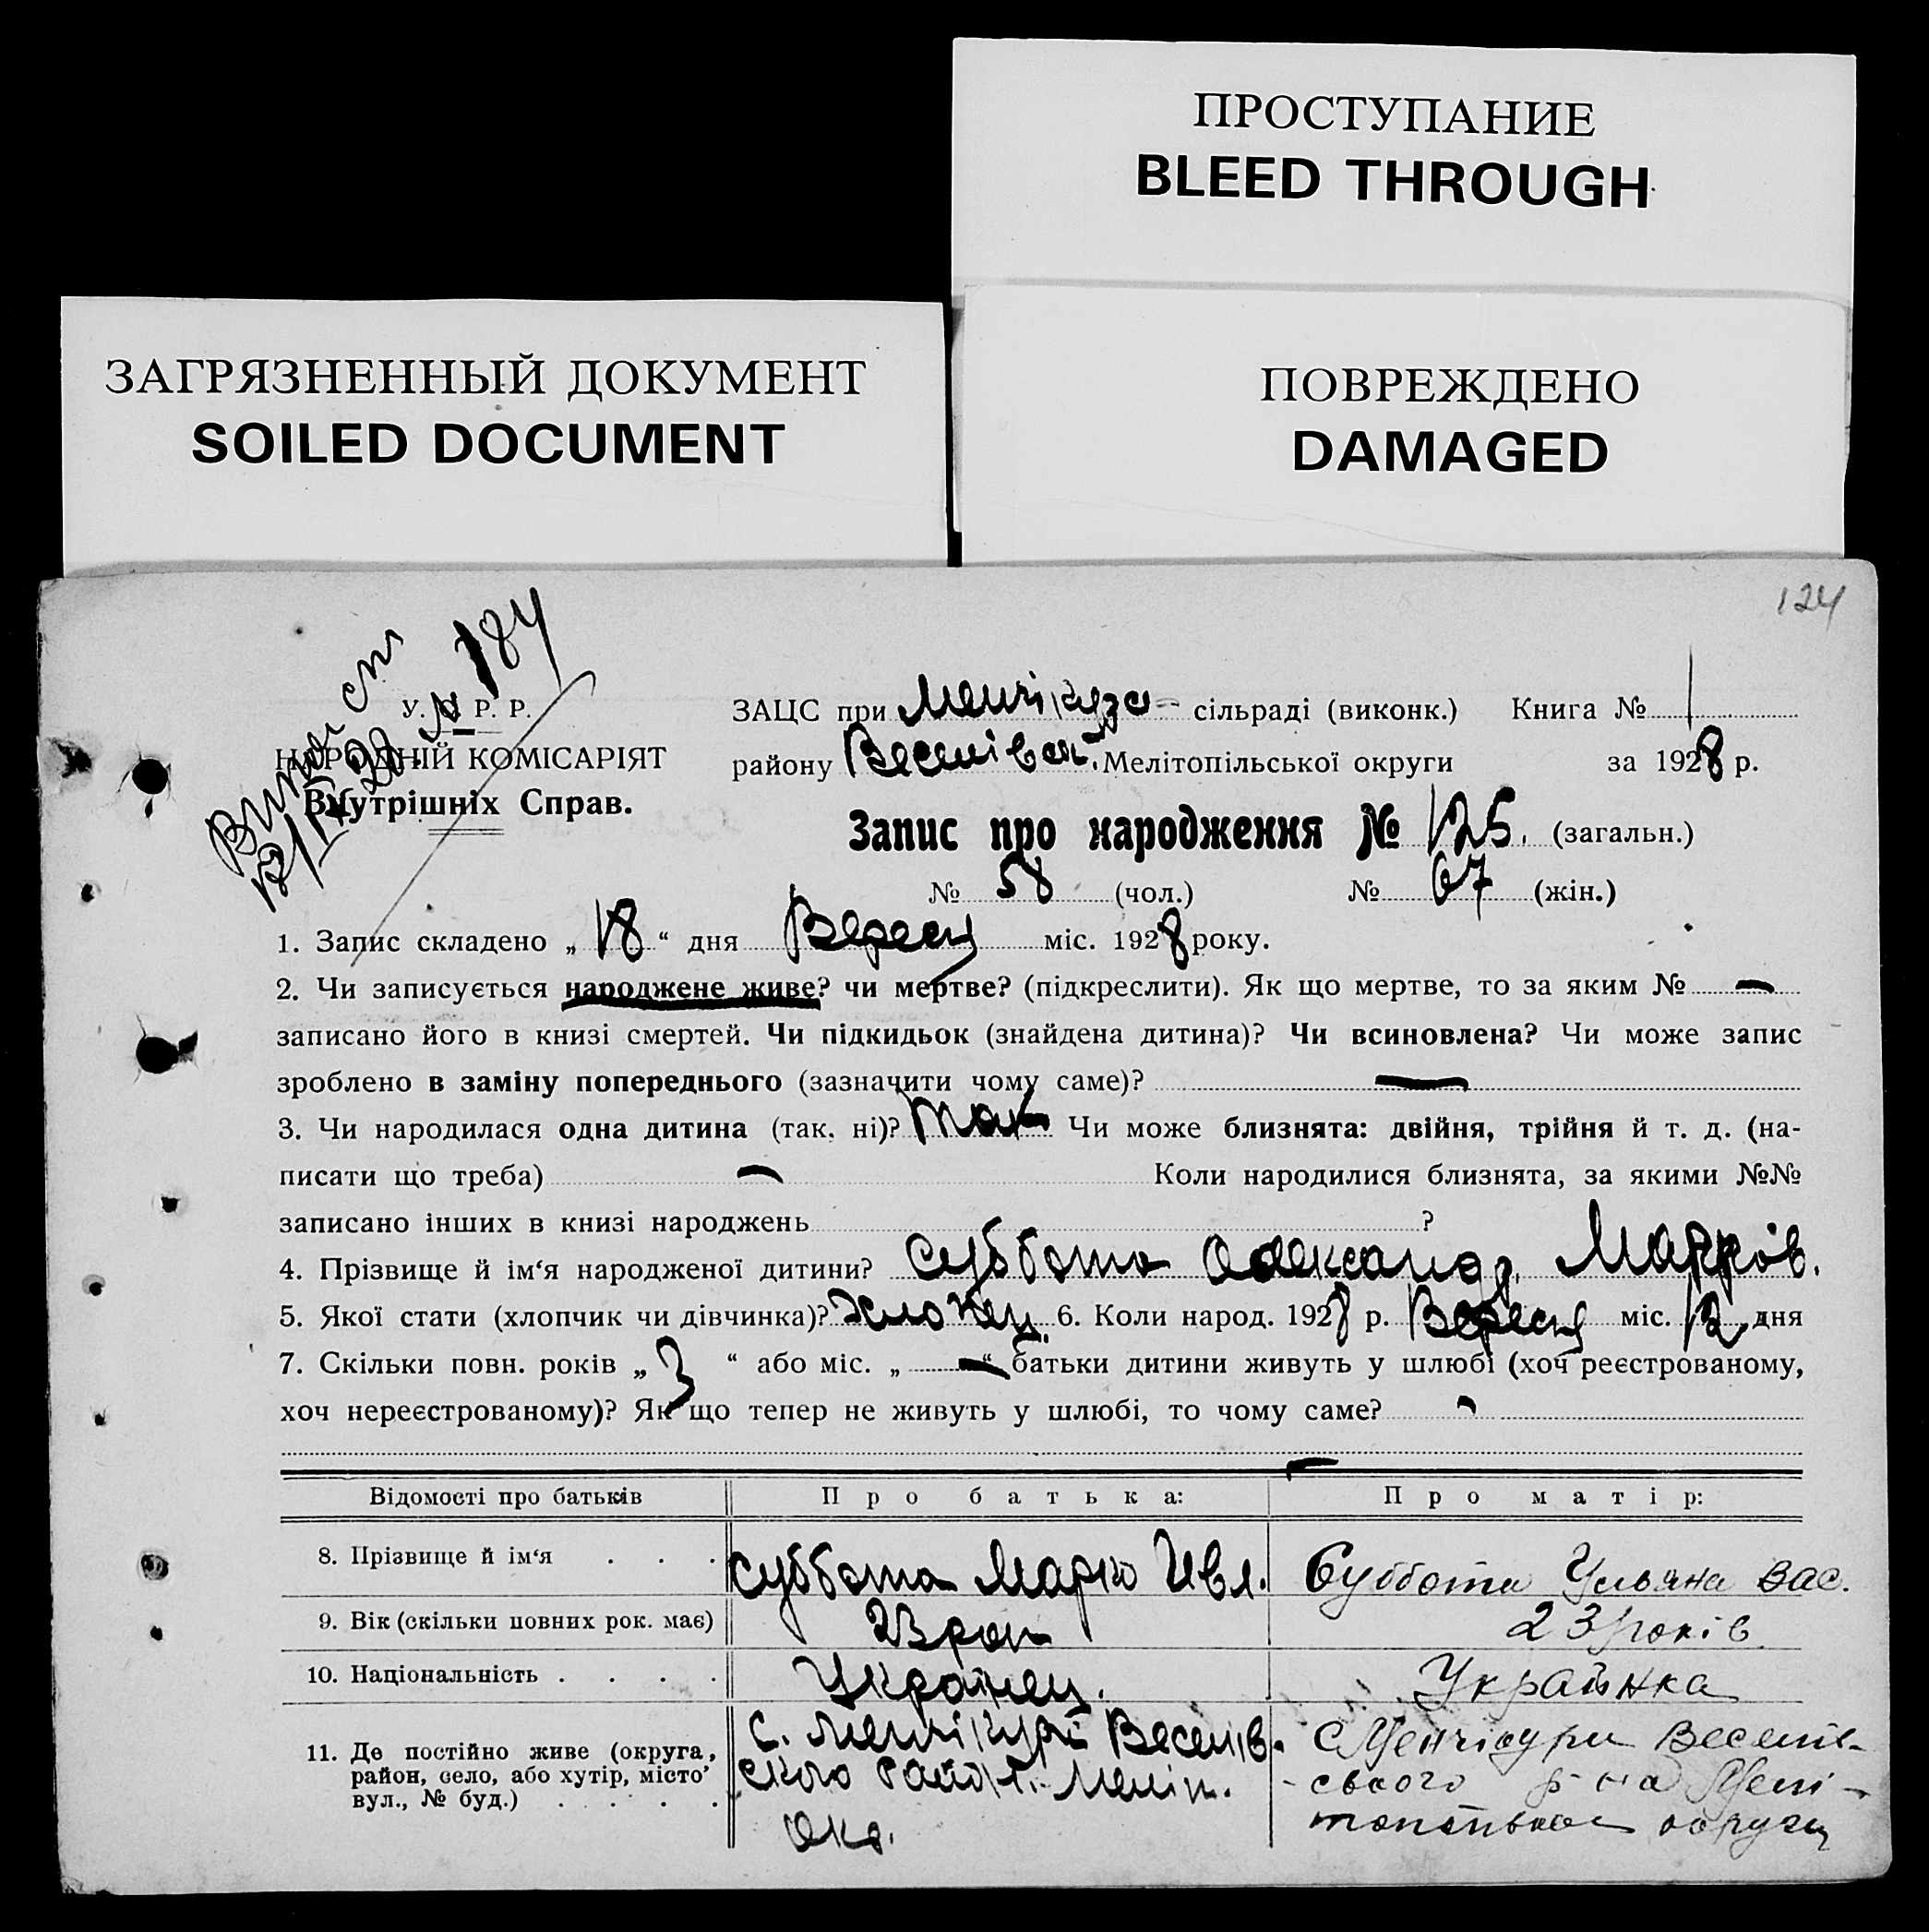 ПРОСТУПАНИЕ
BLEED THROUGH
ЗАГРЯЗНЕННЫЙ ДОКУМЕНТ
SOILED DOCUMENT
ПОВРЕЖДЕНО
DAMAGED
124
№ 184
У. С. Р. Р.
НАРОДНІЙ КОМІСАРІЯТ
Внутрішніх Справ.
ЗАЦС при Менчікура сільраді (виконк.) Книга № 1
району Веселівск. Мелітопільської округи за 1928 р.
Запис про народження № 125. (загальн.)
№ 58 (чол.) № 67 (жін.)
1. Запис складено „ 18 “ дня Вересц міс. 1928 року.
2. Чи записується народжене живе? чи мертве? (підкреслити). Як що мертве, то за яким № —
записано його в книзі смертей. Чи підкидьок (знайдена дитина)? Чи всиновлена? Чи може запис
зроблено в заміну попереднього (зазначити чому саме)? —
3. Чи народилася одна дитина (так, ні)? Так Чи може близнята: двійня, трійня й т. д. (на-
писати що треба) — Коли народилися близнята, за якими №№
записано інших в книзі народжень ?
4. Прізвище й ім‘я народженої дитини? Суббота Олександр. Марков.
5. Якої стати (хлопчик чи дівчинка)? Хлопец. 6. Коли народ. 1928 р. Вересц міс. 12 дня
7. Скільки повн. років „ 3 “ або міс. „ — “ батьки дитини живуть у шлюбі (хоч реєстрованому,
хоч нереєстрованому)? Як що тепер не живуть у шлюбі, то чому саме? -
Відомості про батьків Про батька: Про матір:
8. Прізвище й ім‘я . . . Суббота Марко Ивл. Суббота Ульяна Вас.
9. Вік (скільки повних рок. має) 23 рок 23 років
10. Національність . . . . Українец. Українка
11. Де постійно живе (округа, район, село, або хутір, місто, вул., № буд.) . . . .
с. Менчікурі Веселів-
ского Район. Меліт.
окр.
с Менчікури Веселів-
ського р-на Мелі-
топільської округи